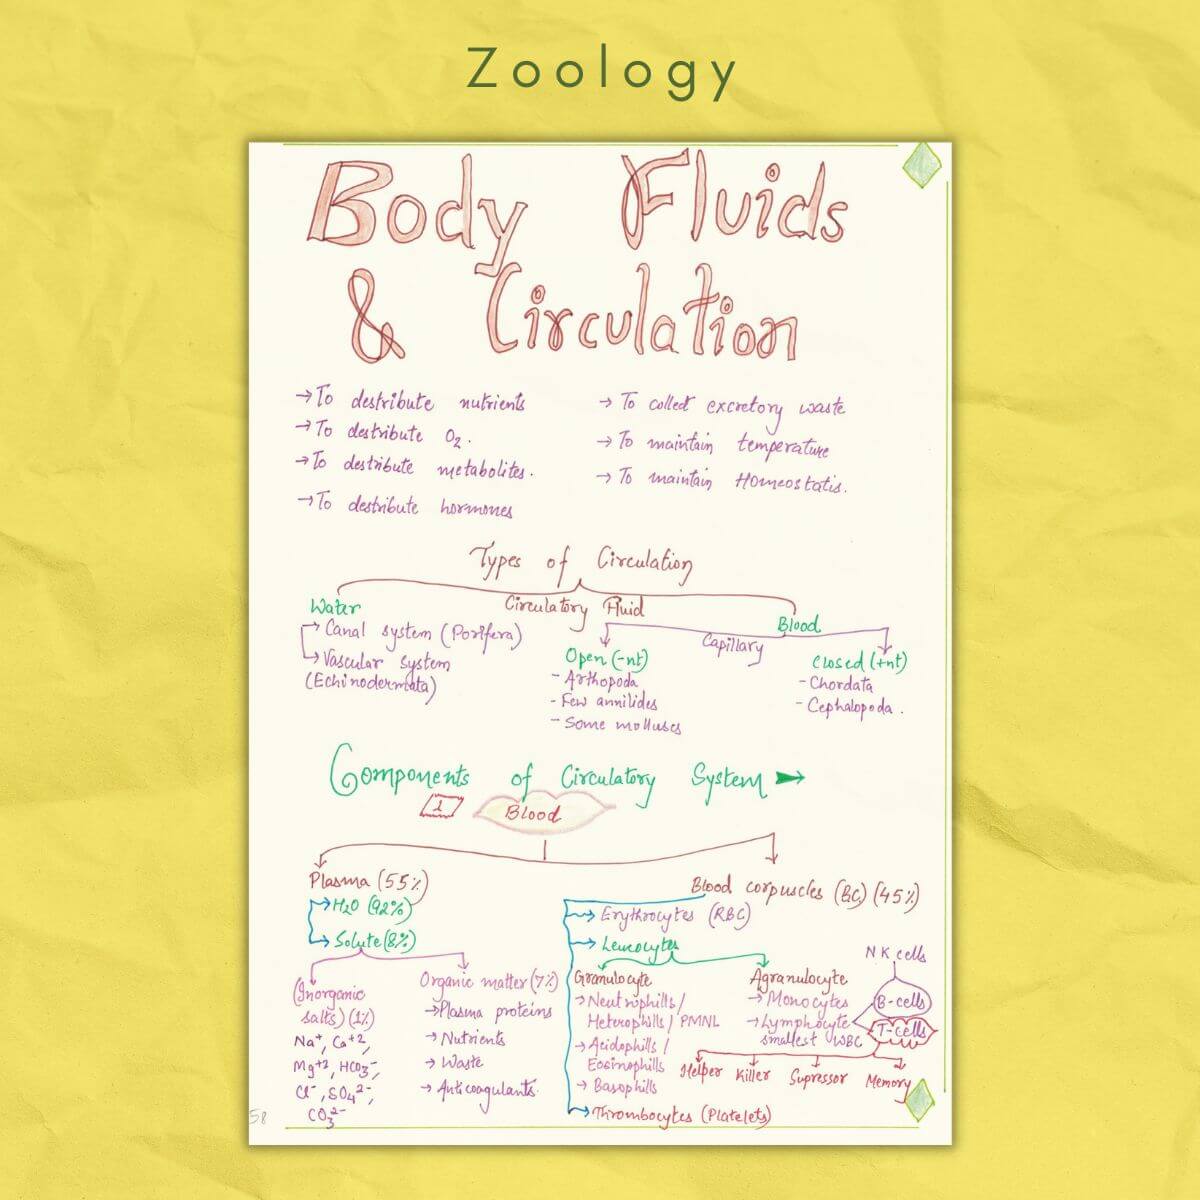 Zoology
Body Fluids
& Circulation
→ To destribute nutrients
→ To destribute O2.
→ To destribute metabolites.
→ To destribute hormones
→ To collect excretory waste
→ To maintain temperature
→ To maintain Homeostatis.
Types of Circulation
Water
→ Canal system (Porifera)
→ Vascular system
(Echinodermata)
Circulatory Fluid
Blood
Capillary
Open (-nt)
- Arthopoda
- Few annilides
- Some molluscs
Closed (+nt)
- Chordata
- Cephalopoda.
Components of Circulatory System
1 Blood
Plasma (55%)
→ H2O (92%)
→ Solute (8%)
(Inorganic
salts) (1%)
Na+, Ca+2,
Mg+2, HCO3-,
Cl-, SO4 2-,
CO3 2-
Organic matter (7%)
→ Plasma proteins
→ Nutrients
→ Waste
→ Anticoagulants.
Blood corpuscles (BC) (45%)
→ Erythrocytes (RBC)
→ Leucocytes
Granulocyte
→ Neutrophills/
Heterophills/PMNL
→ Acidophills/
Eosinophills
→ Basophills
Agranulocyte
→ Monocytes
→ Lymphocyte
smallest WBC
NK cells
B-cells
T-cells
Helper Killer Supressor Memory
→ Thrombocytes (Platelets)
58